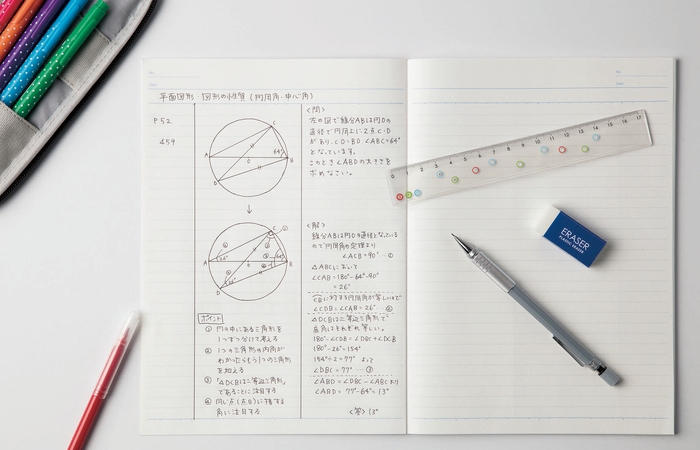 平面図形・図形の性質(円周角・中心角)
P.52
459
<問>
左の図で線分ABは円Oの
直径で円周上に2点C・D
があり、CD=BD ∠ABC=64°
となっています。
このとき∠ABDの大きさを
求めなさい。
A
B
C
D
O
64°
↓
A
B
C
D
<解>
線分ABは円Oの直径となっている
ので円周角の定理より
∠ACB=90° ①
△ABCにおいて
∠CAB=180°-64°-90°
=26°
CBに対する円周角が等しいので
∠CDB=∠CAB=26° ②
△DCBは二等辺三角形で
底角はそれぞれ等しい。
180°-∠CDB=∠DBC+∠DCB
180°-26°=154°
154°÷2=77° よって
∠DBC=77° …③
∠ABD=∠DBC-∠ABCより
∠ABD=77°-64°=13°
<答> 13°
ポイント
① 円の中にある三角形を
1つずつ分けて考える
② 1つの三角形の内角が
わかったらもう1つの三角形
を加える
③ 「△DCBは二等辺三角形」
であることに注目する
④ 同じ点(点B)に接する
角に注目する
0 1 2 3 4 5 6 7 8 9 10 11 12 13 14 15 16 17
ERASER
PLASTIC ERASER